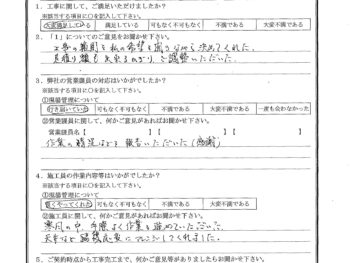 1. 工事に関して、ご満足いただけましたか？
※該当する項目に○を記入して下さい。
大変満足している 満足している 可もなく不可もなく 不満である 大変不満である
2. 「1」についてのご意見をお聞かせ下さい。
工事の範囲を私の希望を
決めてくれた。
見積り額も
調整いただいた。
3. 弊社の営業課員の対応はいかがでしたか？
※該当する項目に○を記入して下さい。
①現場管理について
行き届いていた 可もなく不可もなく 不満である 大変不満である 一度も会わなかった
②営業課員に関して、何かご意見があればお聞かせ下さい。
営業課員名【 】【 】【 】
作業の
報告いただいた（感謝）
4. 施工員の作業内容等はいかがでしたか？
※該当する項目に○を記入して下さい。
①現場管理について
良くやってくれた 可もなく不可もなく 不満である 大変不満である
②施工員に関して、何かご意見があればお聞かせ下さい。
寒風の中、手際よく作業を進めていただいた。
臨機応変にアレンジしてくれました。
5. ご契約時点から工事完工まで、何かご意見等がありましたらお聞かせ下さい。